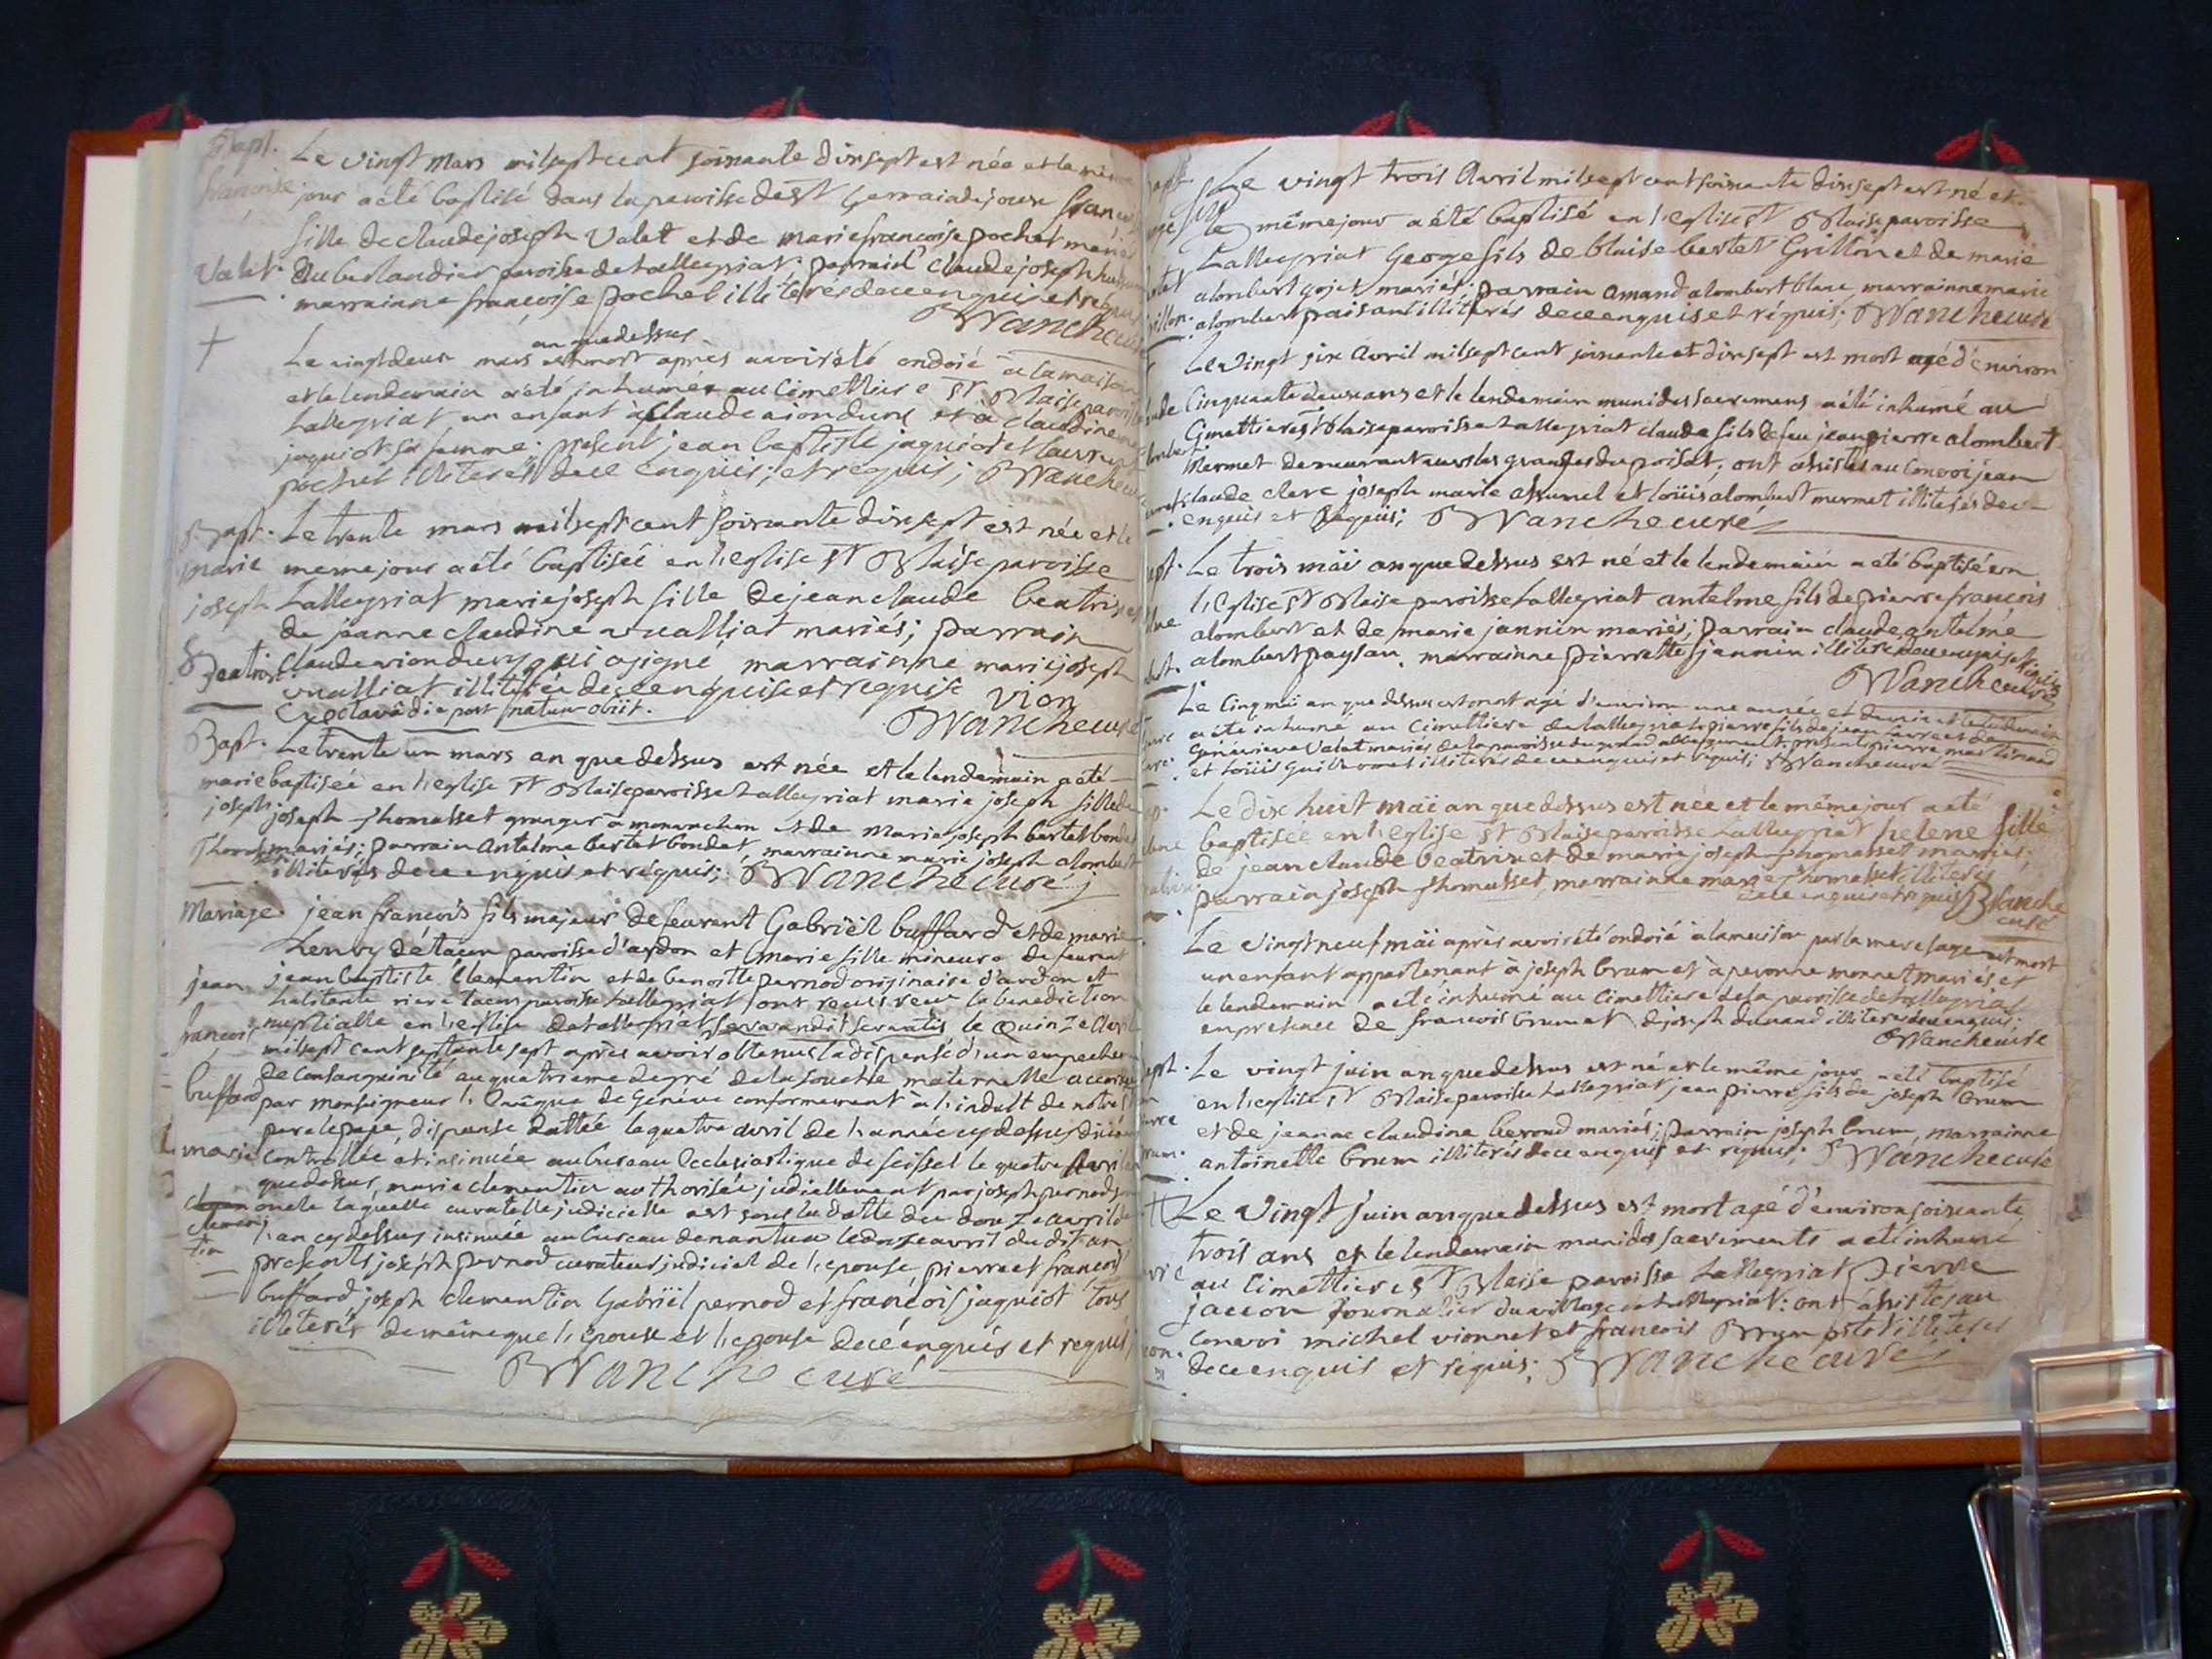 Bapt. Le vingt mars milsept cent soixante dixsept est née et le même
francoise jour a été baptisé dans la paroisse de st Germain de joux
fille de claude joseph Valet et de marie francoise pochet mariés
Valet. paroisse de tallegriat. parrain claude joseph
marrainne francoise pochet illiterés de ce enquis et requis
Blanche curé
an que dessus
Le vingt deux mars est mort après avoir été ondoié a la maison
et le lendemain a été inhumé au Cimettiere st Blaise paroisse
tallegriat un enfant à claude et à claudine
jaquiot sa femme; present jean baptiste jaquiot et laurent
pochet illiterés de ce enquis; et requis; Blanche curé
Bapt. Le trente mars milsept cent soixante dixsept est née et le
marie meme jour a été baptisée en l'eglise st Blaise paroisse
joseph tallegriat marie joseph fille de jean claude beatrix et
de jeanne claudine vualliat mariés; parrain
Beatrix claude qui a signé, marrainne marie joseph
vualliat illiterée de ce enquise et requise vion
octava die post natum obiit. Blanche curé
Bapt. Le trente un mars an que dessus est née et le lendemain a été
marie baptisée en l'eglise st Blaise paroisse tallegriat marie joseph fille de
joseph joseph thomasset granger a monanchon et de marie joseph bertet bondet
mariés; parrain antelme bertet bondet, marrainne marie joseph alombert
illiterés de ce enquis et réquis; Blanche curé
Mariage. jean francois fils majeur de feu Gabriël buffard et de marie
paroisse d'ardon et marie fille mineure de
jean jean baptiste clementin et de benoitte pernod originaire d'ardon et
habitante riere tacon paroisse tallegriat ont receu la benediction
francois nuptialle en l'eglise de tallegriat servandis servatis le Quinze avril
milsept cent septante sept après avoir obtenus la dispense d'un empechement
de Consanguinité au quatrieme degré de la souche maternelle accordée
buffard par monseigneur l'Evêque de Genève conformement à l'indult de notre st
pere le pape, dispense dattée le quatre avril de l'année cy dessus
marie Controllée et insinuée au bureau Ecclesiastique de seissel le quatre avril
que dessus, marie clementin authorisée judiciellement par joseph pernod son
oncle laquelle curatelle judicielle est sous la datte du douze avril de
clementin l'an cy dessus insinuée au bureau de nantua le avril du dit an
presents joseph pernod curateur judiciel de l'epouse, pierre et francois
buffard joseph clementin Gabriël pernod et francois jaquiot tous
illiterés de même que l'épouse de ce enquis et requis;
Blanche curé
Le vingt trois Avril milsept cent soixante dixsept est né et
le même jour a été baptisé en l'eglise st Blaise paroisse
tallegriat George fils de blaise bertet Grillon et de marie
alombert gojet mariés; parrain amand alombert blanc, marrainne marie
alombert paisant illitérés de ce enquis et réquis; Blanche curé
Le vingt six Avril milsept cent soixante et dixsept est mort agé d'environ
Cinquante deux ans et le lendemain muni des sacremens a été inhumé au
Cimettiere st blaise paroisse tallegriat claude fils de feu jean pierre alombert
Mermet demeurant aux granges du poisat; ont assistés au Convoi jean
claude clerc joseph marie et loüis alombert mermet illiterés de ce
enquis et requis; Blanche curé
Le trois mäi an que dessus est né et le lendemain a été baptisé en
l'Eglise st Blaise paroisse tallegriat antelme fils de pierre francois
alombert et de marie jannin mariés; parrain claude antelme
alombert paysan, marrainne pierrette jannin illiterés de ce enquis et requis
Blanche curé
Le Cinq mäi an que dessus est mort agé d'environ une année et demie et le lendemain
a été inhumé au Cimettiere de tallegriat pierre fils de jean et de
Genevieve Valet mariés de la paroisse du present pierre
et loüis Guillermet illiterés de ce enquis et requis; Blanche curé
Le dix huit mäi an que dessus est née et le même jour a été
baptisée en l'eglise st Blaise paroisse tallegriat helene fille
de jean claude beatrix et de marie joseph thomasset mariés;
parrain joseph thomasset, marrainne marie thomasset illiterés
de ce enquis et requis Blanche
curé
Le vingt neuf mäi après avoir été ondoié a la maison par la mere sage est mort
un enfant appartenant à joseph brun et à pevonne monnet mariés et
le lendemain a été inhumé au Cimettiere de la paroisse de tallegriat
en presence de francois brun et de joseph durand illiterés de ce enquis;
Blanche curé
Le vingt juin an que dessus est né et le même jour a été baptisé
en l'eglise st Blaise paroisse tallegriat jean pierre fils de joseph brun
et de jeanne claudine beroud mariés; parrain joseph brun, marrainne
antoinette brun illiterés de ce enquis et requis; Blanche curé
Le vingt juin an que dessus est mort agé d'environ soixante
trois ans et le lendemain muni des sacrements a été inhumé
au Cimettiere st Blaise paroisse tallegriat pierre
jaccon journalier du village de tallegriat: ont assistés au
Convoi michel vionnet et francois illiterés
de ce enquis et requis; Blanche curé